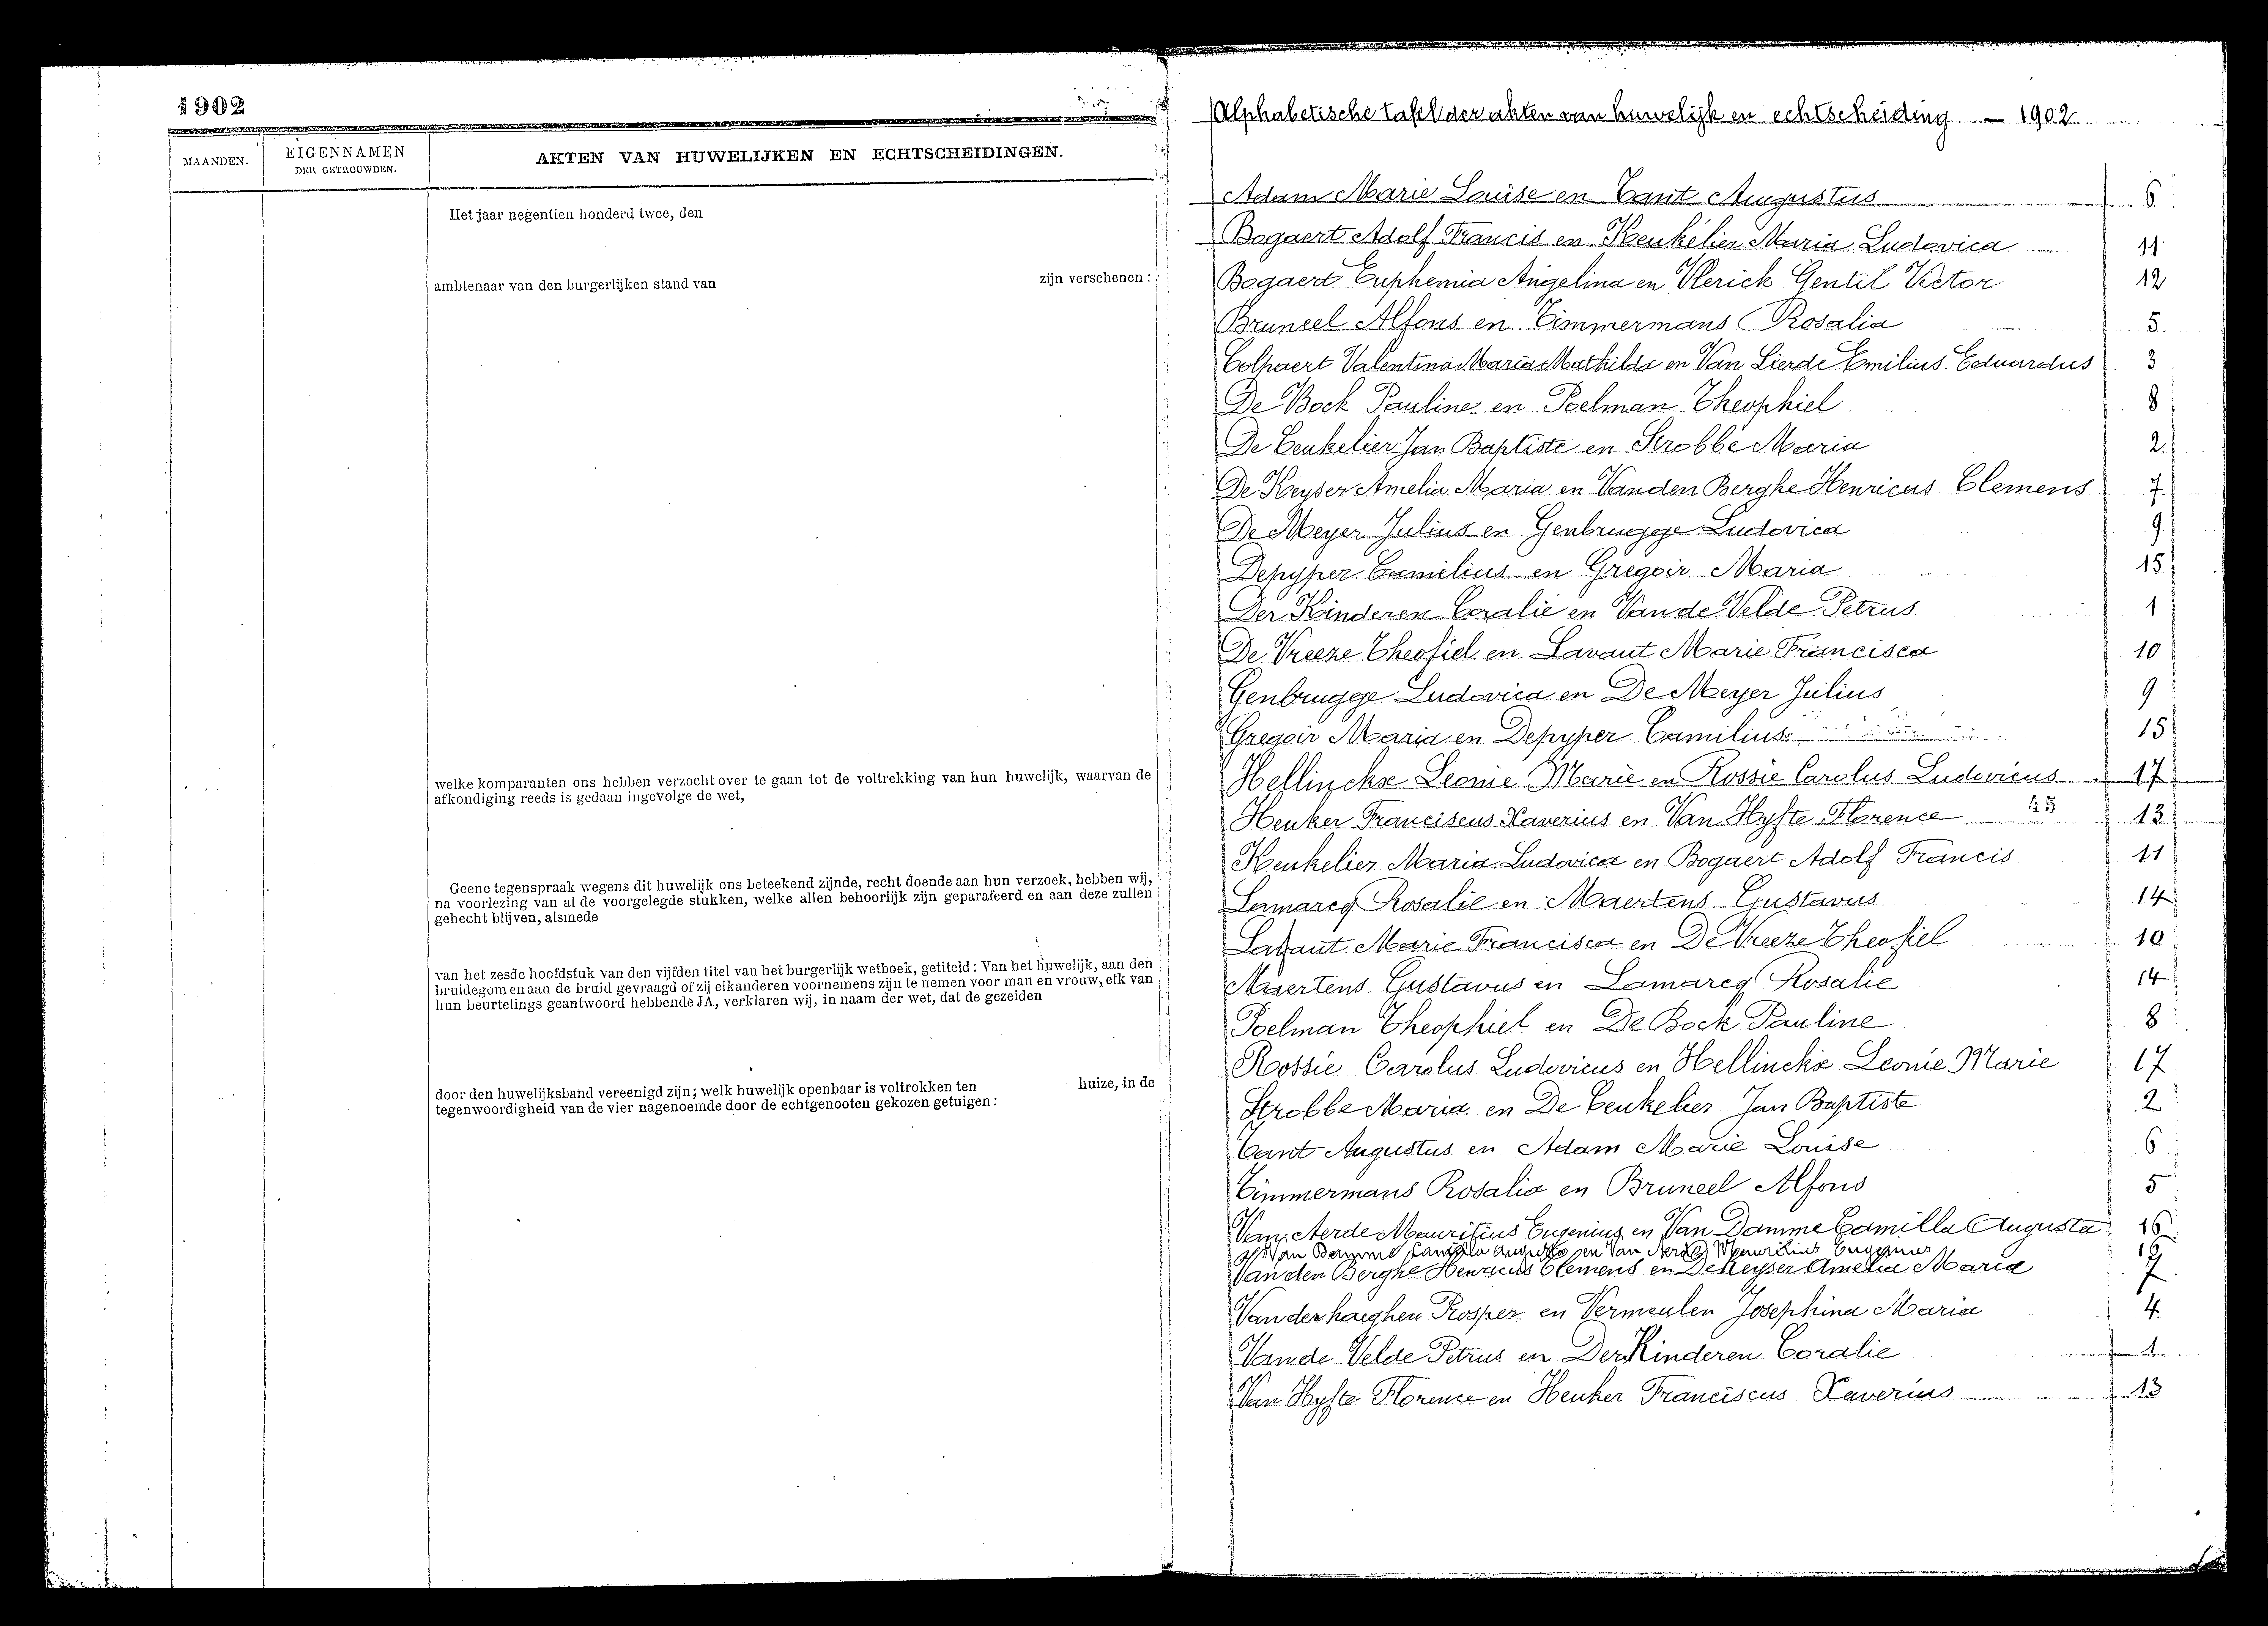 1902
MAANDEN.
EIGENNAMEN
DER GETROUWDEN.
AKTEN VAN HUWELIJKEN EN ECHTSCHEIDINGEN.
Het jaar negentien honderd twee, den
ambtenaar van den burgerlijken stand van zijn verschenen :
welke komparanten ons hebben verzocht over te gaan tot de voltrekking van hun huwelijk, waarvan de
afkondiging reeds is gedaan ingevolge de wet,
Geene tegenspraak wegens dit huwelijk ons beteekend zijnde, recht doende aan hun verzoek, hebben wij,
na voorlezing van al de voorgelegde stukken, welke allen behoorlijk zijn geparafeerd en aan deze zullen
gehecht blijven, alsmede
van het zesde hoofdstuk van den vijfden titel van het burgerlijk wetboek, getiteld : Van het huwelijk, aan den
bruidegom en aan de bruid gevraagd of zij elkanderen voornemens zijn te nemen voor man en vrouw, elk van
hun beurtelings geantwoord hebbende JA, verklaren wij, in naam der wet, dat de gezeiden
door den huwelijksband vereenigd zijn; welk huwelijk openbaar is voltrokken ten huize, in de
tegenwoordigheid van de vier nagenoemde door de echtgenooten gekozen getuigen :
Alphabetische tafel der akten van huwelijk en echtscheiding — 1902
Adam Marie Louise en Cant Augustus 6
Bogaert Adolf Francis en Keukelier Maria Ludovica 11
Bogaert Euphemia Angelina en Vlerick Gentil Victor 12
Bruneel Alfons en Timmermans Rosalia 5
Colpaert Valentina Maria Mathilda en Van Lierde Emilius Eduardus 3
De Bock Pauline en Poelman Theophiel 8
De Ceukelier Jan Baptiste en Strobbe Maria 2
De Keyser Amelia Maria en Vanden Berghe Henricus Clemens 7
De Meyer Julius en Genbrugge Ludovica 9
Depyper Camilius en Gregoir Maria 15
Der Kinderen Coralie en Van de Velde Petrus 1
De Vreeze Theofiel en Lavaut Marie Francisca 10
Genbrugge Ludovica en De Meyer Julius 9
Gregoir Maria en Depyper Camilius 15
Hellinckx Leonie Marie en Rossie Carolus Ludovicus 17
Heuker Franciscus Xaverius en Van Hyfte Florence 45 13
Keukelier Maria Ludovica en Bogaert Adolf Francis 11
Lamarcq Rosalie en Maertens Gustavus 14
Lavaut Marie Francisca en De Vreeze Theofiel 10
Maertens Gustavus en Lamarcq Rosalie 14
Poelman Theophiel en De Bock Pauline 8
Rossie Carolus Ludovicus en Hellinckx Leonie Marie 17
Strobbe Maria en De Ceukelier Jan Baptiste 2
Cant Augustus en Adam Marie Louise 6
Timmermans Rosalia en Bruneel Alfons 5
Van Aerde Mauritius Eugenius en Van Damme Camilla Augusta 16
Van Damme Camilla Augusta en Van Aerde Mauritius Eugenius 16
Van den Berghe Henricus Clemens en De Keyser Amelia Maria 7
Vanderhaeghen Prosper en Vermeulen Josephina Maria 4
Van de Velde Petrus en Der Kinderen Coralie 1
Van Hyfte Florence en Heuker Franciscus Xaverius 13